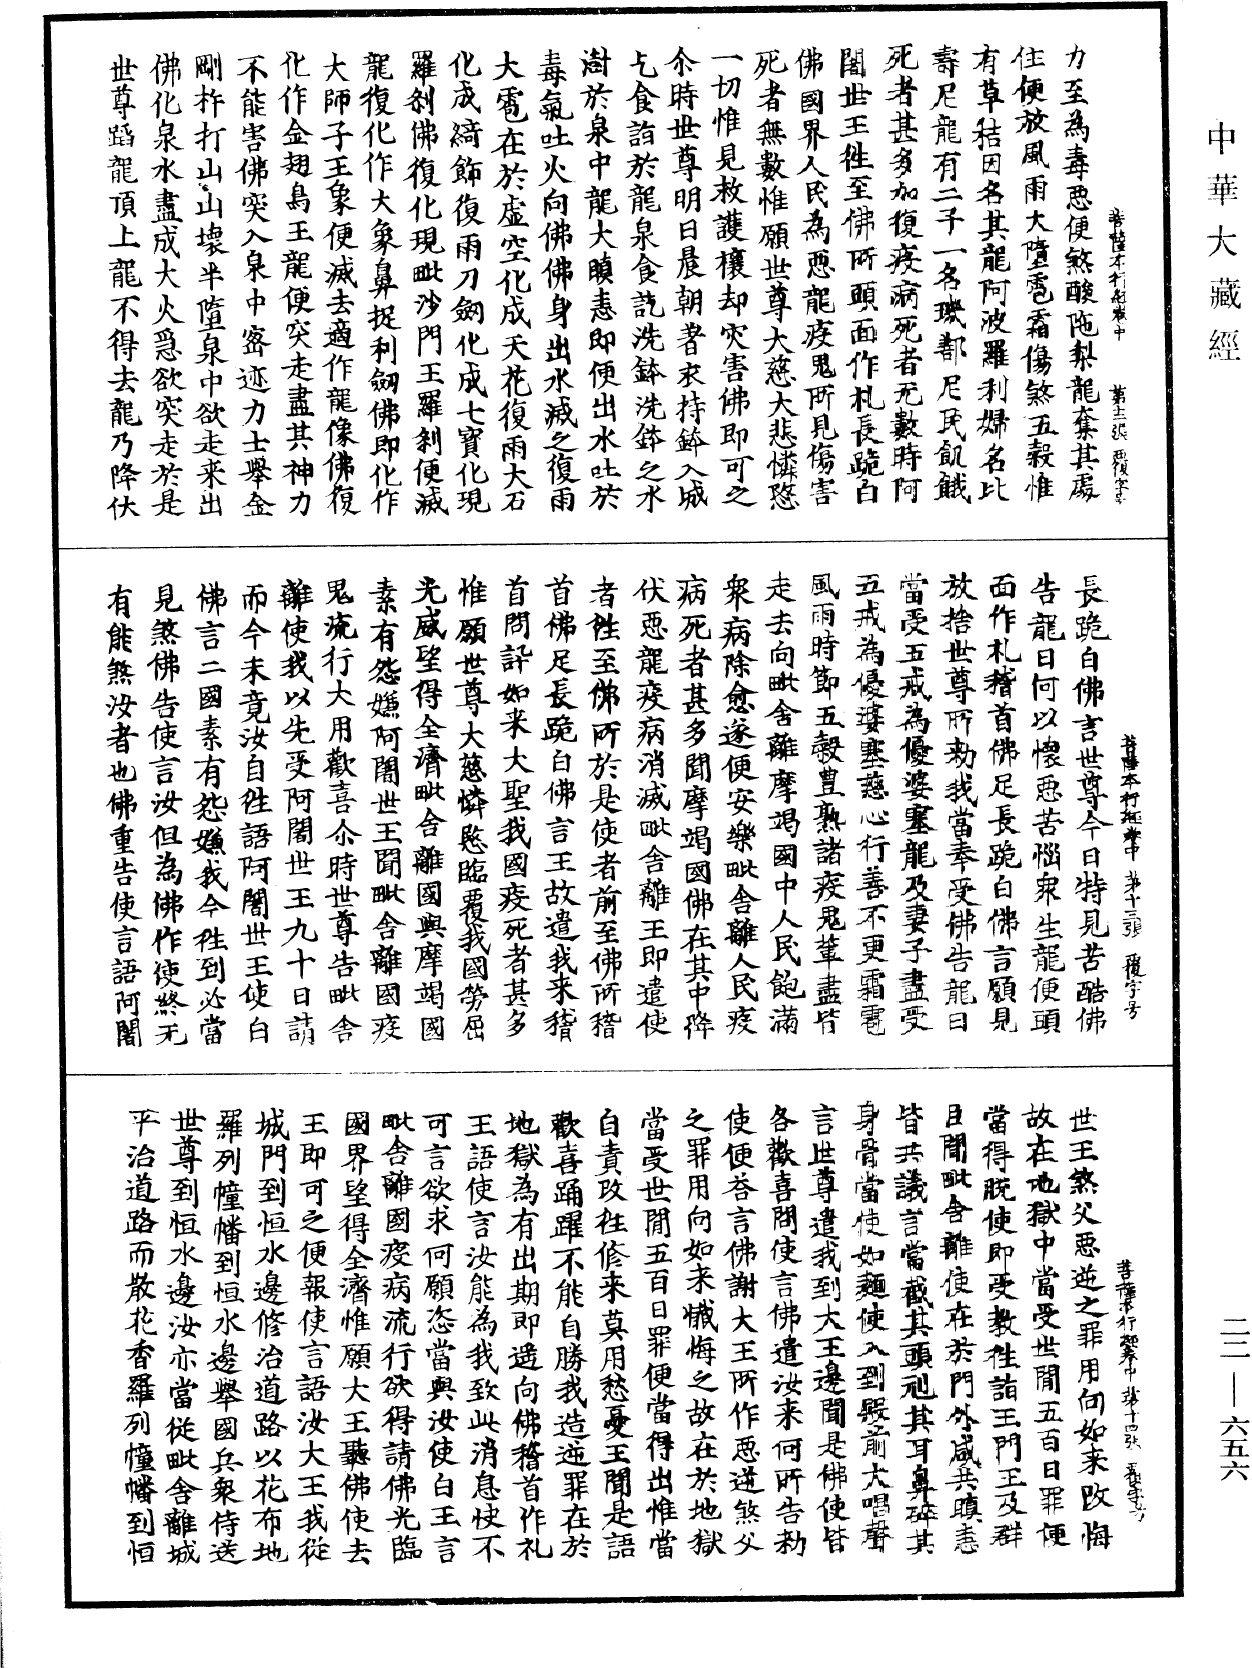 中華大藏經
力至為毒惡便煞酸陁梨龍奪其處
住便放風雨大墮雹霜傷煞五穀惟
有草秸因名其龍阿波羅利婦名比
壽尼龍有二子一名璣鄯尼民飢餓
死者甚多加復疫病死者无數時阿
闍世王徃至佛所頭面作礼長跪白
佛國界人民為惡龍疫鬼所見傷害
死者無數惟願世尊大慈大悲憐愍
一切惟見救護攘却灾害佛即可之
尒時世尊明日晨朝著衣持鉢入城
乞食詣於龍泉食訖洗鉢洗鉢之水
澍於泉中龍大瞋恚即便出水吐於
毒氣吐火向佛佛身出水滅之復雨
大雹在於虛空化成天花復雨大石
化成綺飾復雨刀劒化成七寶化現
羅刹佛復化現毗沙門王羅刹便滅
龍復化作大象鼻捉利劒佛即化作
大師子王象便滅去適作龍像佛復
化作金翅鳥王龍便突走盡其神力
不能害佛突入泉中密迹力士舉金
剛杵打山山壞半墮泉中欲走来出
佛化泉水盡成大火急欲突走於是
世尊蹈龍頂上龍不得去龍乃降伏
菩薩本行經卷中　第十三張　覆字号
長跪白佛言世尊今日特見苦酷佛
告龍曰何以懷惡苦惱衆生龍便頭
面作礼稽首佛足長跪白佛言願見
放捨世尊所勑我當奉受佛告龍曰
當受五戒為優婆塞龍及妻子盡受
五戒為優婆塞慈心行善不更霜雹
風雨時節五穀豊熟諸疫鬼輩盡皆
走去向毗舍離摩竭國中人民飽滿
衆病除愈遂便安樂毗舍離人民疫
病死者甚多聞摩竭國佛在其中降
伏惡龍疫病消滅毗舍離王即遣使
者徃至佛所於是使者前至佛所稽
首佛足長跪白佛言王故遣我来稽
首問訊如来大聖我國疫死者甚多
惟願世尊大慈憐愍臨覆我國勞屈
光威望得全濟毗舍離國與摩竭國
素有怨嫌阿闍世王聞毗舍離國疫
鬼流行大用歡喜尒時世尊告毗舍
離使我以先受阿闍世王九十日請
而今未竟汝自徃語阿闍世王使白
佛言二國素有怨嫌我今徃到必當
見煞佛告使言汝但為佛作使終无
有能煞汝者也佛重告使言語阿闍
世王煞父惡逆之罪用向如来改悔
故在地獄中當受世間五百日罪便
當得脫使即受教徃詣王門王及群
臣聞毗舍離使在於門外咸共瞋恚
皆共議言當截其頭刵其耳鼻碎其
身骨當使如麵使入到殿前大唱聲
言世尊遣我到大王邊聞是佛使皆
各歡喜問使言佛遣汝来何所告勑
使便荅言佛謝大王所作惡逆煞父
之罪用向如来懺悔之故在於地獄
當受世間五百日罪便當得出惟當
自責改徃修来莫用愁憂王聞是語
歡喜踊躍不能自勝我造逆罪在於
地獄為有出期即遥向佛稽首作礼
王語使言汝能為我致此消息快不
可言欲求何願恣當與汝使白王言
毗舍離國疫病流行欲得請佛光臨
國界望得全濟惟願大王聽佛使去
王即可之便報使言語汝大王我從
城門到恒水邊修治道路以花布地
羅列幢幡到恒水邊舉國兵衆侍送
世尊到恒水邊汝亦當從毗舍離城
平治道路而散花香羅列幢幡到恒
二二—六五六